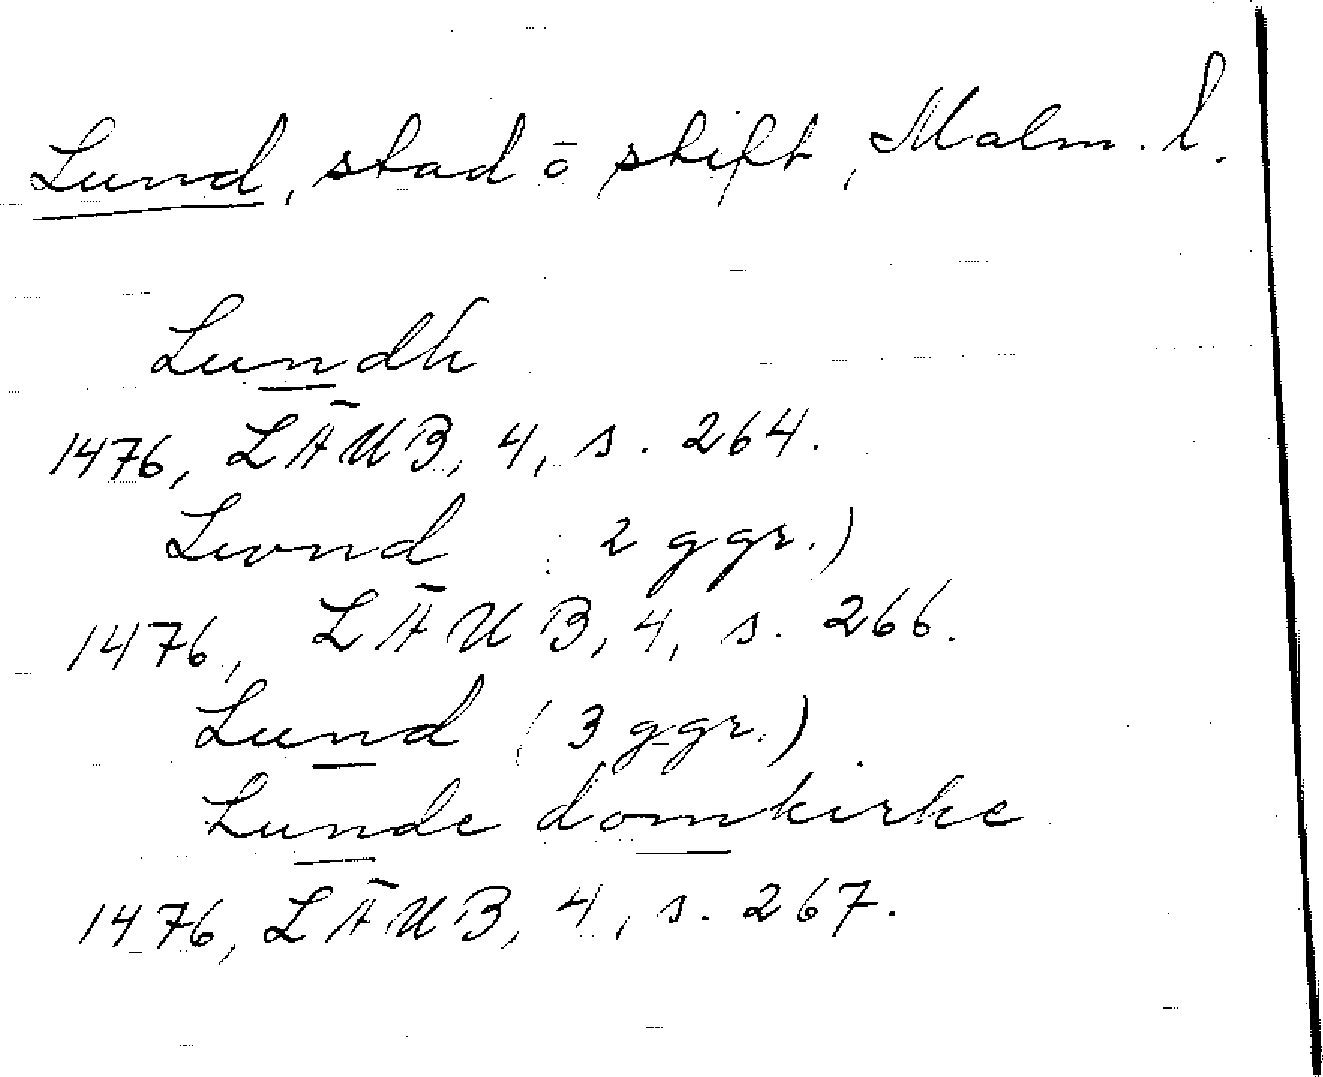 Lund, stad ō stift, Malm. l.
Lundh
1476, LÄUB, 4, s. 264.
Lwnd (2 ggr.)
1476, LÄUB, 4, s. 266.
Lund (3 ggr.)
Lunde domkirke
1476, LÄUB, 4, s. 267.